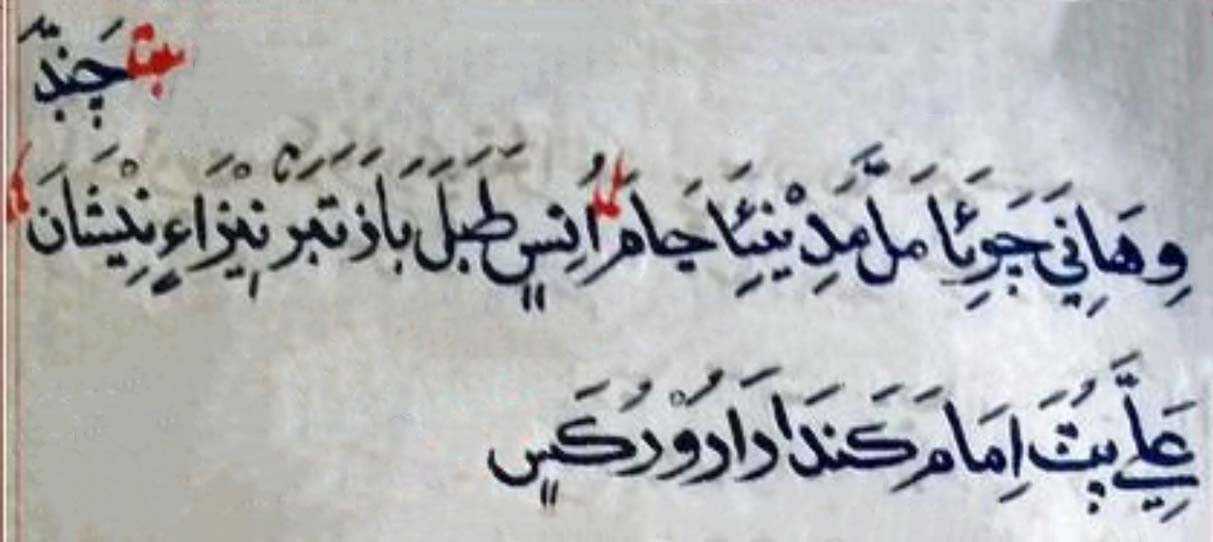 بت چَنِدَّ
وِهَانِيَ جَوَئِا مَلَّ مَدِيْنِئَا جَامَ اُنِسٖ طَبَلَ بَازَ تَبَرَ نِيْزَا ءِ نِيْشَانَ
عَلِيَّ پُٽَ اِمَامَ ڪَنَدَا رَارُوْ رُڪَسٖ